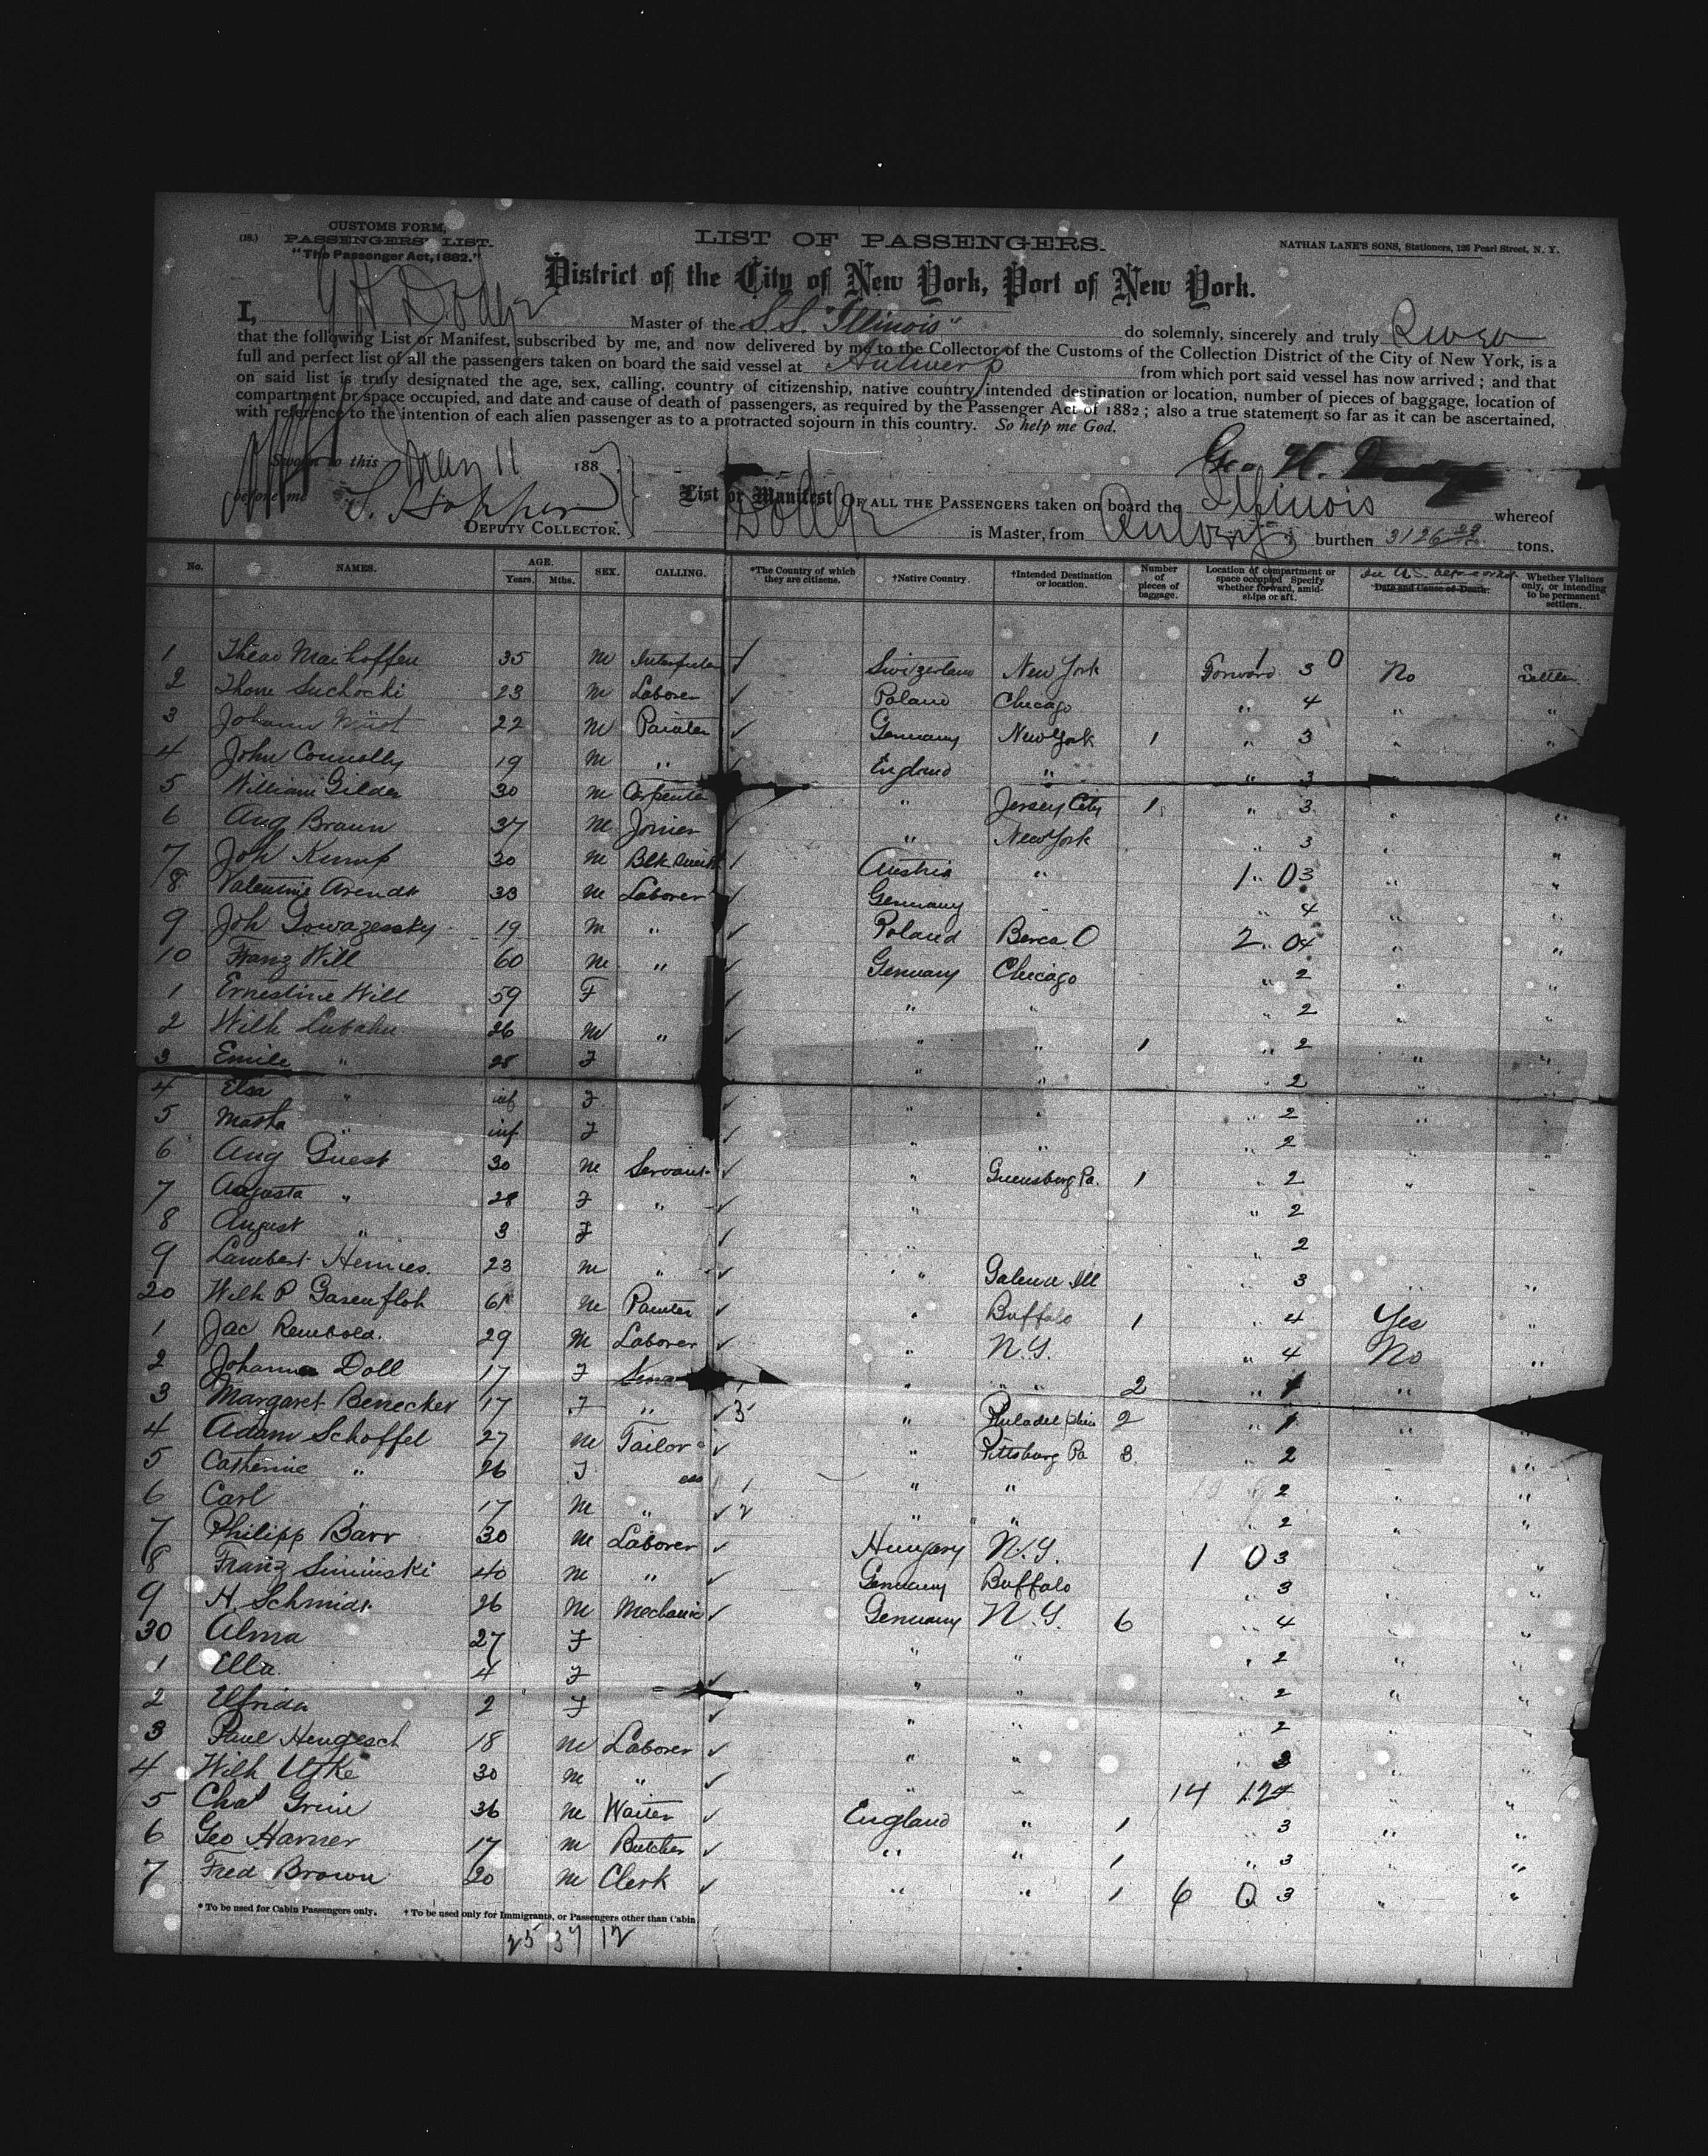 (18.) CUSTOMS FORM,
PASSENGERS' LIST.
"The Passenger Act, 1882."
LIST OF PASSENGERS.
NATHAN LANE'S SONS, Stationers, 126 Pearl Street, N. Y.
District of the City of New York, Port of New York.
I, G H Dodge Master of the S.S. "Illinois" do solemnly, sincerely and truly swear
that the following List or Manifest, subscribed by me, and now delivered by me to the Collector of the Customs of the Collection District of the City of New York, is a
full and perfect list of all the passengers taken on board the said vessel at Antwerp from which port said vessel has now arrived; and that
on said list is truly designated the age, sex, calling, country of citizenship, native country, intended destination or location, number of pieces of baggage, location of
compartment or space occupied, and date and cause of death of passengers, as required by the Passenger Act of 1882; also a true statement so far as it can be ascertained,
with reference to the intention of each alien passenger as to a protracted sojourn in this country. So help me God.
Sworn to this 11 188
Geo H.
before me S. Hopper
DEPUTY COLLECTOR.
List or Manifest OF ALL THE PASSENGERS taken on board the Illinois whereof
Dodge is Master, from Antwerp burthen 3126 tons.
No. NAMES. AGE. Years. Mths. SEX. CALLING. *The Country of which they are citizens. †Native Country. †Intended Destination or location. Number of pieces of baggage. Location of compartment or space occupied Specify whether forward, amidships or aft. Date and Cause of Death. Whether Visitors only, or intending to be permanent settlers.
1 Theo 35 m Switzerland New York Forward 1 3 0 No Settler
2 Thom Suchocki 23 m Laborer Poland Chicago " 4 " "
3 Johann Wüst 22 m Painter Germany New York 1 " 3 " "
4 John Connolly 19 m " England " " 3
5 William Gilder 30 m Carpenter " Jersey City 1 " 3 " "
6 Aug Braun 37 m Joiner " New York " 3 " "
7 Joh Kump 30 m Blksmith Austria " 1 " 0 3 " "
8 Valentine Arendt 33 m Laborer Germany " " 4 " "
9 Joh 19 m " Poland Berea O 2 " 0 4 " "
10 Franz Will 60 m " Germany Chicago " 2 " "
1 Ernestine Will 59 F " " " 2 " "
2 Wilh Lubahn 26 m " " " 1 " 2 " "
3 Emile " 28 F " " " 2 " "
4 Elsa " inf F " " " 2 " "
5 Martha " inf F " " " 2 "
6 Aug Guest 30 m Servant " Greensburg Pa. 1 " 2 " "
7 Augusta " 28 F " " " 2
8 August " 3 F " " 2
9 Lambert 23 m " " Galena Ill " 3 " "
20 Wilh P Gasenfloh 61 m Painter " Buffalo 1 " 4 Yes "
1 Jac Rembold. 29 m Laborer " N.Y. " 4 No "
2 Johanna Doll 17 F " " " 2 " 1 "
3 Margaret Benecker 17 F " 3 " Philadelphia 2 " 1 "
4 Adam Schoffel 27 m Tailor " Pittsburg Pa 3 " 2 "
5 Catherine " 26 F 1 " " " 2 " "
6 Carl " 17 m " 2 " " " 2 " "
7 Philipp Barr 30 m Laborer Hungary N.Y. 1 0 3 "
8 Franz 40 m " Germany Buffalo " 3 " "
9 H. Schmidt 26 m Mechanic Germany N.Y. 6 " 4 " "
30 Alma 27 F " " " 2 " "
1 Ella 4 F " " " 2 " "
2 Elfrida 2 F " " " 2 " "
3 Paul Hengesch 18 m Laborer " " " 3 " "
4 Wilh Utke 30 m " " " 14 12 4 " "
5 Chas 36 m Waiter England " 1 " 3 " "
6 Geo Harner 17 m Butcher " " 1 " 3 "
7 Fred Brown 20 m Clerk " " 1 6 0 3 " "
* To be used for Cabin Passengers only. † To be used only for Immigrants, or Passengers other than Cabin
25 37 12